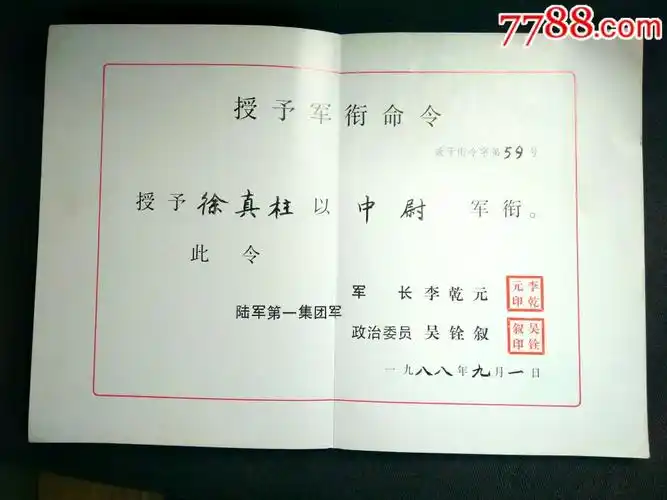 7788.com
授予军衔命令
衔字第59号
授予徐真柱以中尉军衔。
此令
陆军第一集团军
军长李乾元
李乾元印
政治委员吴铨叙
吴铨叙印
一九八八年九月一日